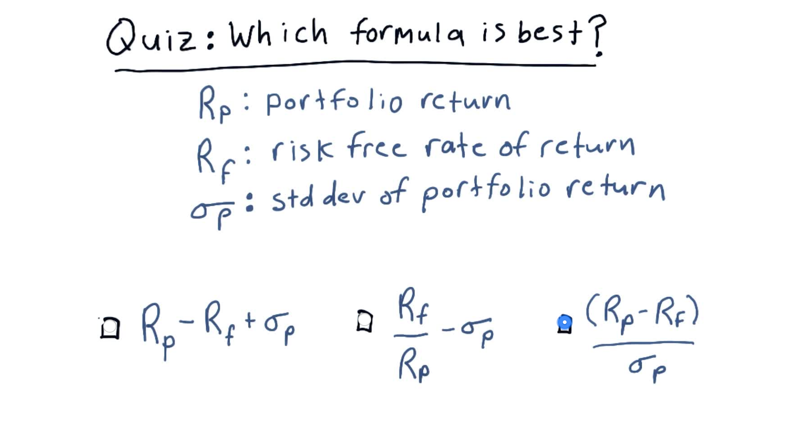 Quiz: Which formula is best?
Rp: portfolio return
Rf: risk free rate of return
σp: std dev of portfolio return
Rp - Rf + σp
Rf/Rp - σp
(Rp - Rf)/σp